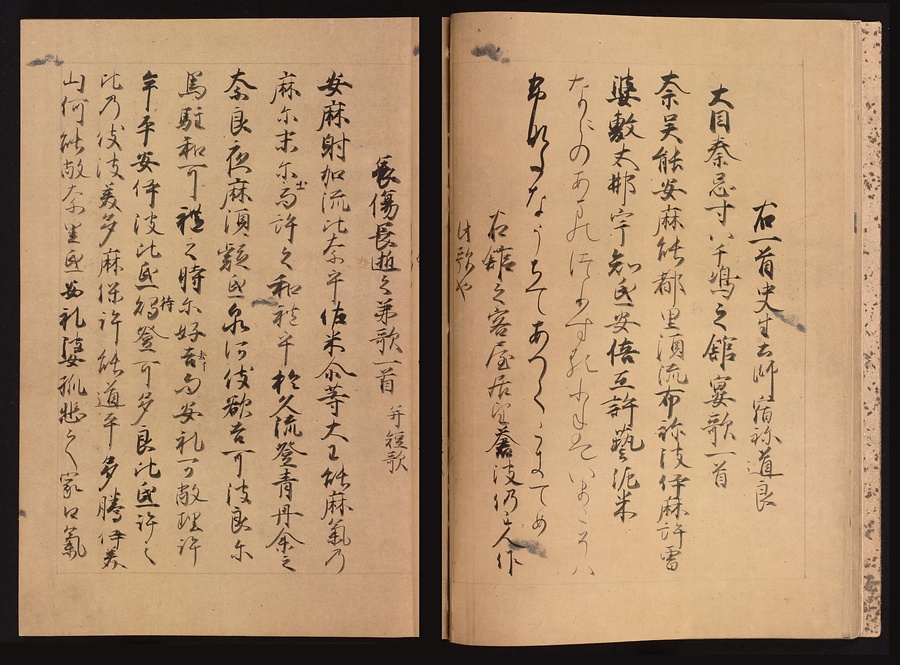 右一首史生土師宿祢道良
大目秦忌寸八千嶋之舘宴歌一首
奈呉能安麻能都里須流布祢波伊麻許曽
婆敷太那宇知氐安倍弖許藝泥米
なこのあまのつりするふねはいまこそハ
ふなたなうちてあへてこきてめ
右舘之客屋居望蒼波仍主人作
此歌也
哀傷長逝之弟歌一首 并短歌
安麻射加流比奈乎佐米尓等大王能麻氣乃
麻尓末尓出而許之和礼乎於久流登青丹余之
奈良夜麻須疑氐泉河伎欲吉可波良尓
馬駐和可礼之時尓好去而安礼可敝理許
牟平安伊波比氐待登可多良比氐許之
比乃伎波美多麻保許能道乎多騰保美
山河能敝奈里氐安礼婆孤悲之家口氣